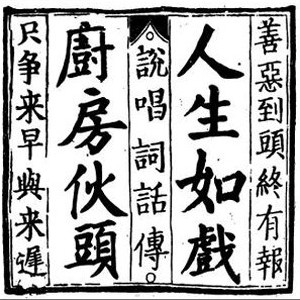 善惡到頭終有報
人生如戲
說唱詞話傳
廚房伙頭
只争来早與来遲